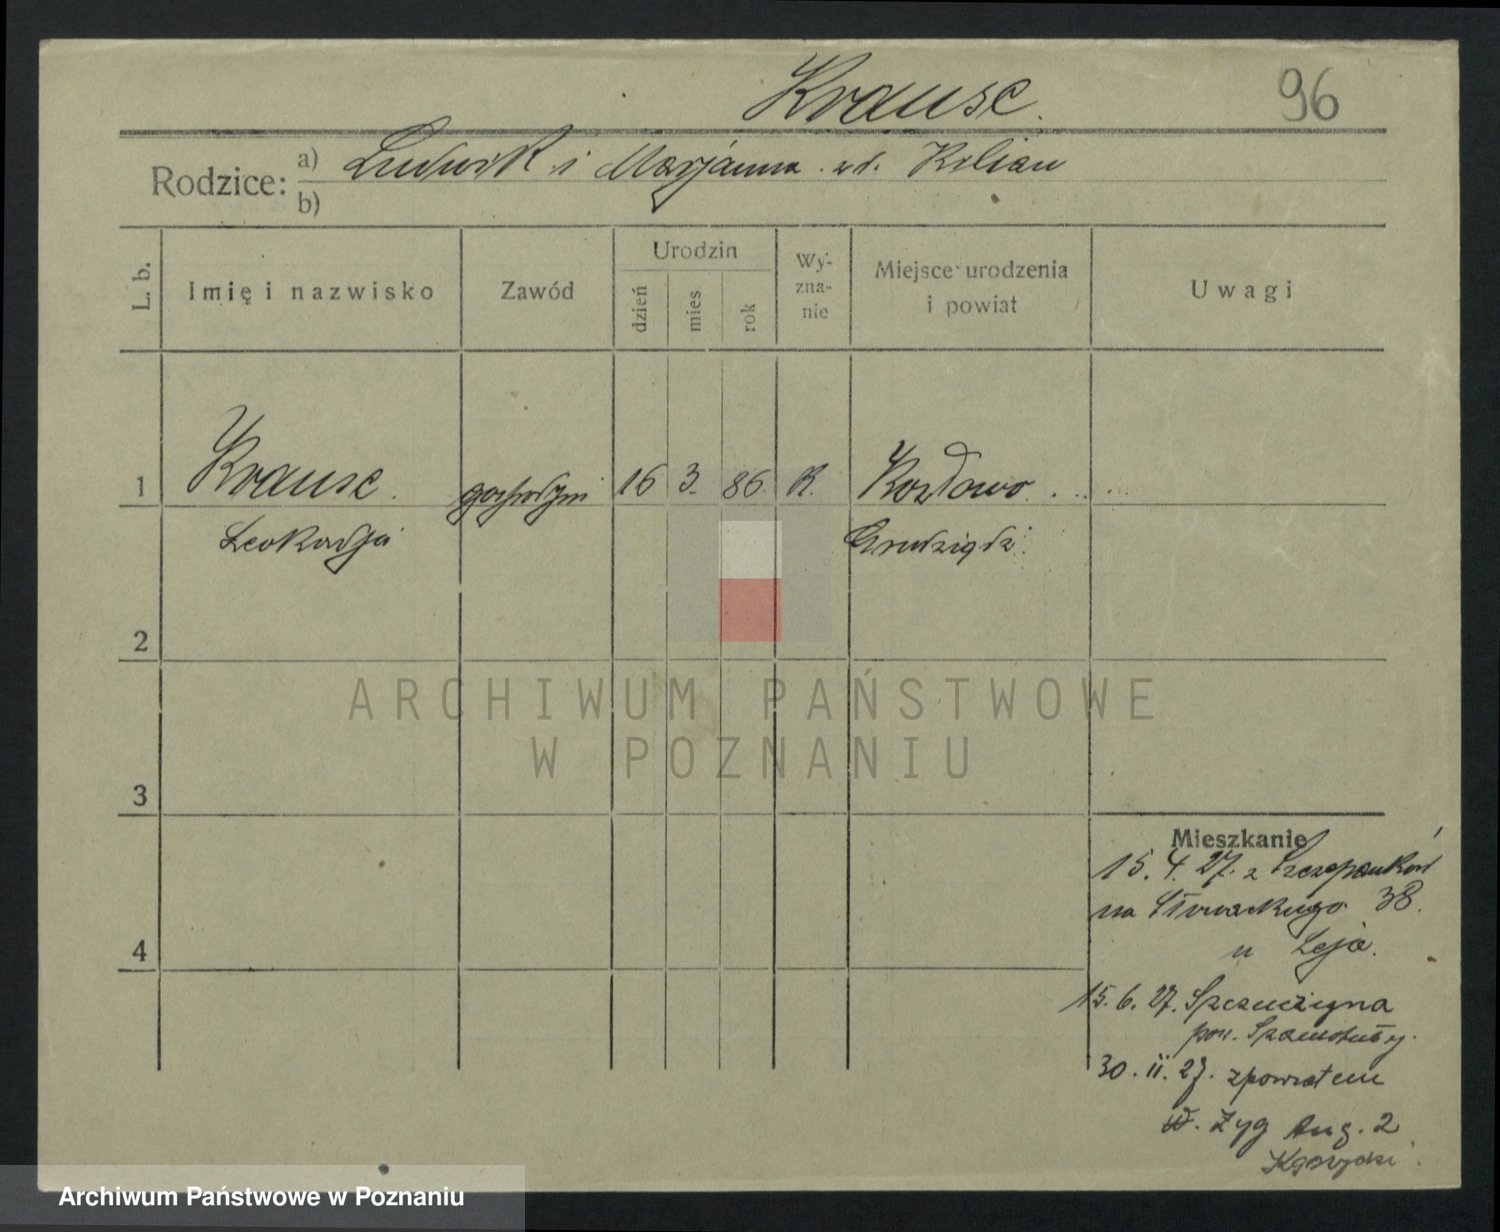 Krause.
96
Rodzice: a) Ludwik i Marjanna zd. Kilian
b)
L. b.
Imię i nazwisko
Zawód
Urodzin
dzień
mies
rok
Wy-
zna-
nie
Miejsce urodzenia
i powiat
Uwagi
1 Krause. 16 3. 86. R. Kozłowo
Leokadja Grudziądz.
2
ARCHIWUM PAŃSTWOWE
W POZNANIU
3
Mieszkanie
15. 4. 27. z
na Słowackiego 38.
4
u Leja.
15. 6. 27. Szczuczyna
pow. Szamotuły.
30. 11. 27. zpowrotem
Zyg Aug. 2
Archiwum Państwowe w Poznaniu